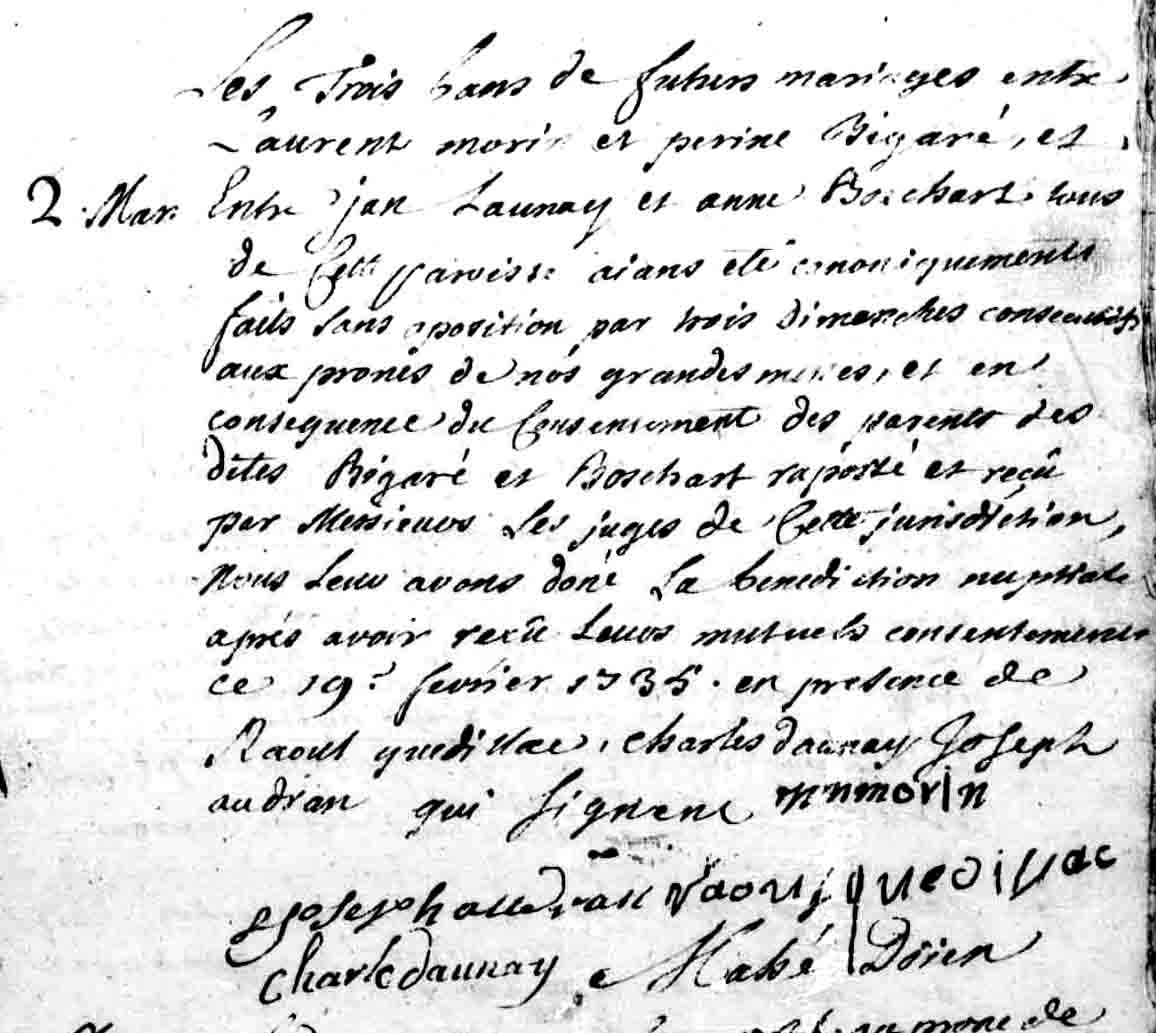 Les Trois bans de futurs mariages entre
Laurent morin et perine Bigaré, et
2 Mar. Entre jan Launay et anne Boschart tous
de Cette paroisse aians eté canoniquements
faits sans oposition par trois Dimanches consecutifs
aux prones de nos grandes messes, et en
consequence du Consentement des parents des
dites Bigaré et Boschart raporté et reçû
par Messieurs Les juges de Cette jurisdiction,
Nous Leur avons doné La benediction nuptiale
aprés avoir recû Leurs mutuels consentements
ce 19e fevrier 1735. en presence de
Raoul quedillac, charles daunay Joseph
audran qui signent morin
Joseph audran raoul quedillac
charle daunay Mahé Doien
de